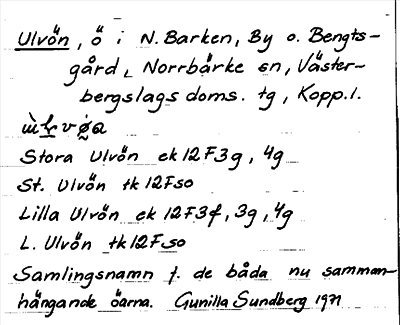 Ulvön, ö i N. Barken, By o. Bengts-
gård, Norrbärke sn, Väster-
bergslags doms. tg, Kopp. l.
Stora Ulvön ek 12F3g, 4g
St. Ulvön tk 12Fso
Lilla Ulvön ek 12F3f, 3g, 4g
L. Ulvön tk 12Fso
Samlingsnamn f. de båda nu samman-
hängande öarna. Gunilla Sundberg 1971